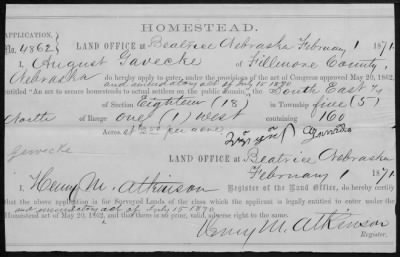 HOMESTEAD.
APPLICATION.
No. 4862} LAND OFFICE at Beatrice Nebraska February 1 1871.
I, August Gavecke of Fillmore County,
Nebraska do hereby apply to enter, under the provisions of the act of Congress approved May 20, 1862,
and amendatory act of July 15 1870
entitled "An Act to secure homesteads to actual settlers on the public domain," the South East 1/4
of Section Eighteen (18) in Township five (5)
North of Range one (1) west containing 160
Acres at $2.50 per acre
Gevecke
LAND OFFICE at Beatrice Nebraska
February 1 1871.
I, Henry M. Atkinson Register of the Land Office, do hereby certify
that the above application is for Surveyed Lands of the class which the applicant is legally entitled to enter under the
and amendatory act of July 15 1870
Homestead act of May 20, 1862, and that there is no prior, valid, adverse right to the same.
Henry M. Atkinson
Register.